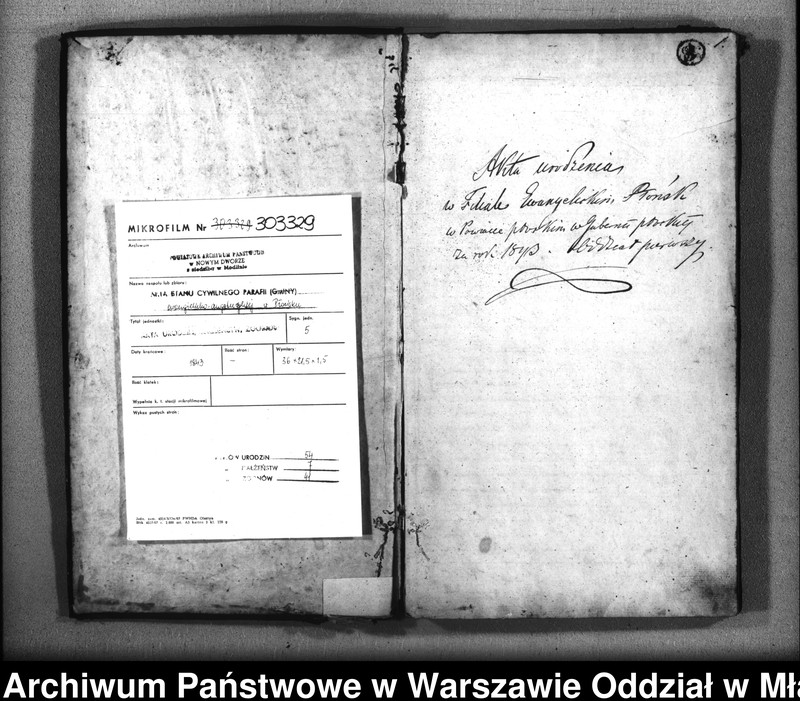 MIKROFILM Nr 303329 303329
Archiwum
POWIATOWE ARCHIWUM PAŃSTWOWE
w NOWYM DWORZE
z siedzibą w Modlinie
Nazwa zespołu lub zbioru:
AKTA STANU CYWILNEGO PARAFII (GMINY)
ewangelicko-augsburskiej w Płońsku
Tytuł jednostki:
Sygn. jedn.
5
Daty krańcowe:
1843
Ilość stron:
—
Wymiary:
Ilość klatek:
Wypełnia k. t. stacji mikrofilmowej
Wykaz pustych stron:
URODZIN 54
MAŁŻEŃSTW 7
ZGONÓW 41
Akta urodzenia
w Filiale Ewangelickim Płońsk
w Powiecie płockim w Guberni płockiej
za rok 1843. Oddział pierwszy.
Archiwum Państwowe w Warszawie Oddział w Mła